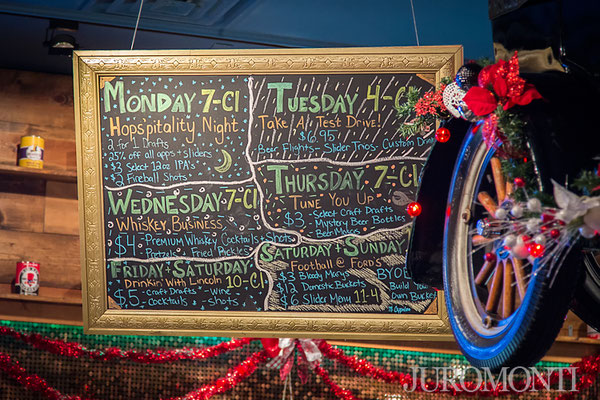 MONDAY 7-Cl
Hops'pitality Night
2 for 1 Drafts
25% off all apps + sliders
$2 Select 12oz IPA's
$2 Fireball Shots
TUESDAY 4-Cl
Take A Test Drive!
$6.95
Beer Flights - Slider Trios - Custom Drink
WEDNESDAY 7-Cl
Whiskey Business
$4 - Premium Whiskey Cocktails + Shots
Pretzels - Fried Pickles
THURSDAY 7-Cl
Tune You Up
$3 - Select Craft Drafts
- Mystery Beer Bottles
- Beer
FRIDAY + SATURDAY
Drinkin' With Lincoln 10-Cl
$5 - craft Drafts - wine
- cocktails - shots
SATURDAY + SUNDAY
Football @ Ford's
$3 Bloody Marys
$12 Domestic Buckets
$6 Slider Menu 11-4
BYOB
Build Your
Own Burger
JUROMONTI